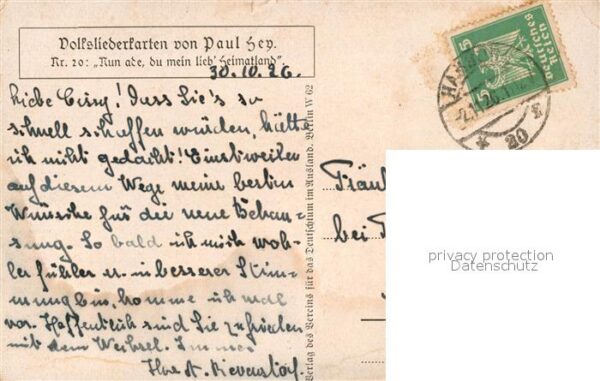 Volksliederkarten von Paul Hey.
Nr. 20: „Nun ade, du mein lieb' Heimatland"
30.10.26.
Liebe Cissy! Dass Sie's so
schnell schaffen würden, hätte
ich nicht gedacht! Einstweilen
auf diesem Wege meine besten
Wünsche für die neue Behau=
sung. So bald ich mich woh-
ler fühle u. in besserer Stim-
mung bin, komme ich mal
vor. Hoffentlich sind Sie zufrieden
mit dem Wechsel. Immer
Ihre A.
Verlag des Vereins für das Deutschtum im Ausland. Berlin W 62
Deutsches
Reich
5
5
2.11.26.
20
Fräul
bei
privacy protection
Datenschutz